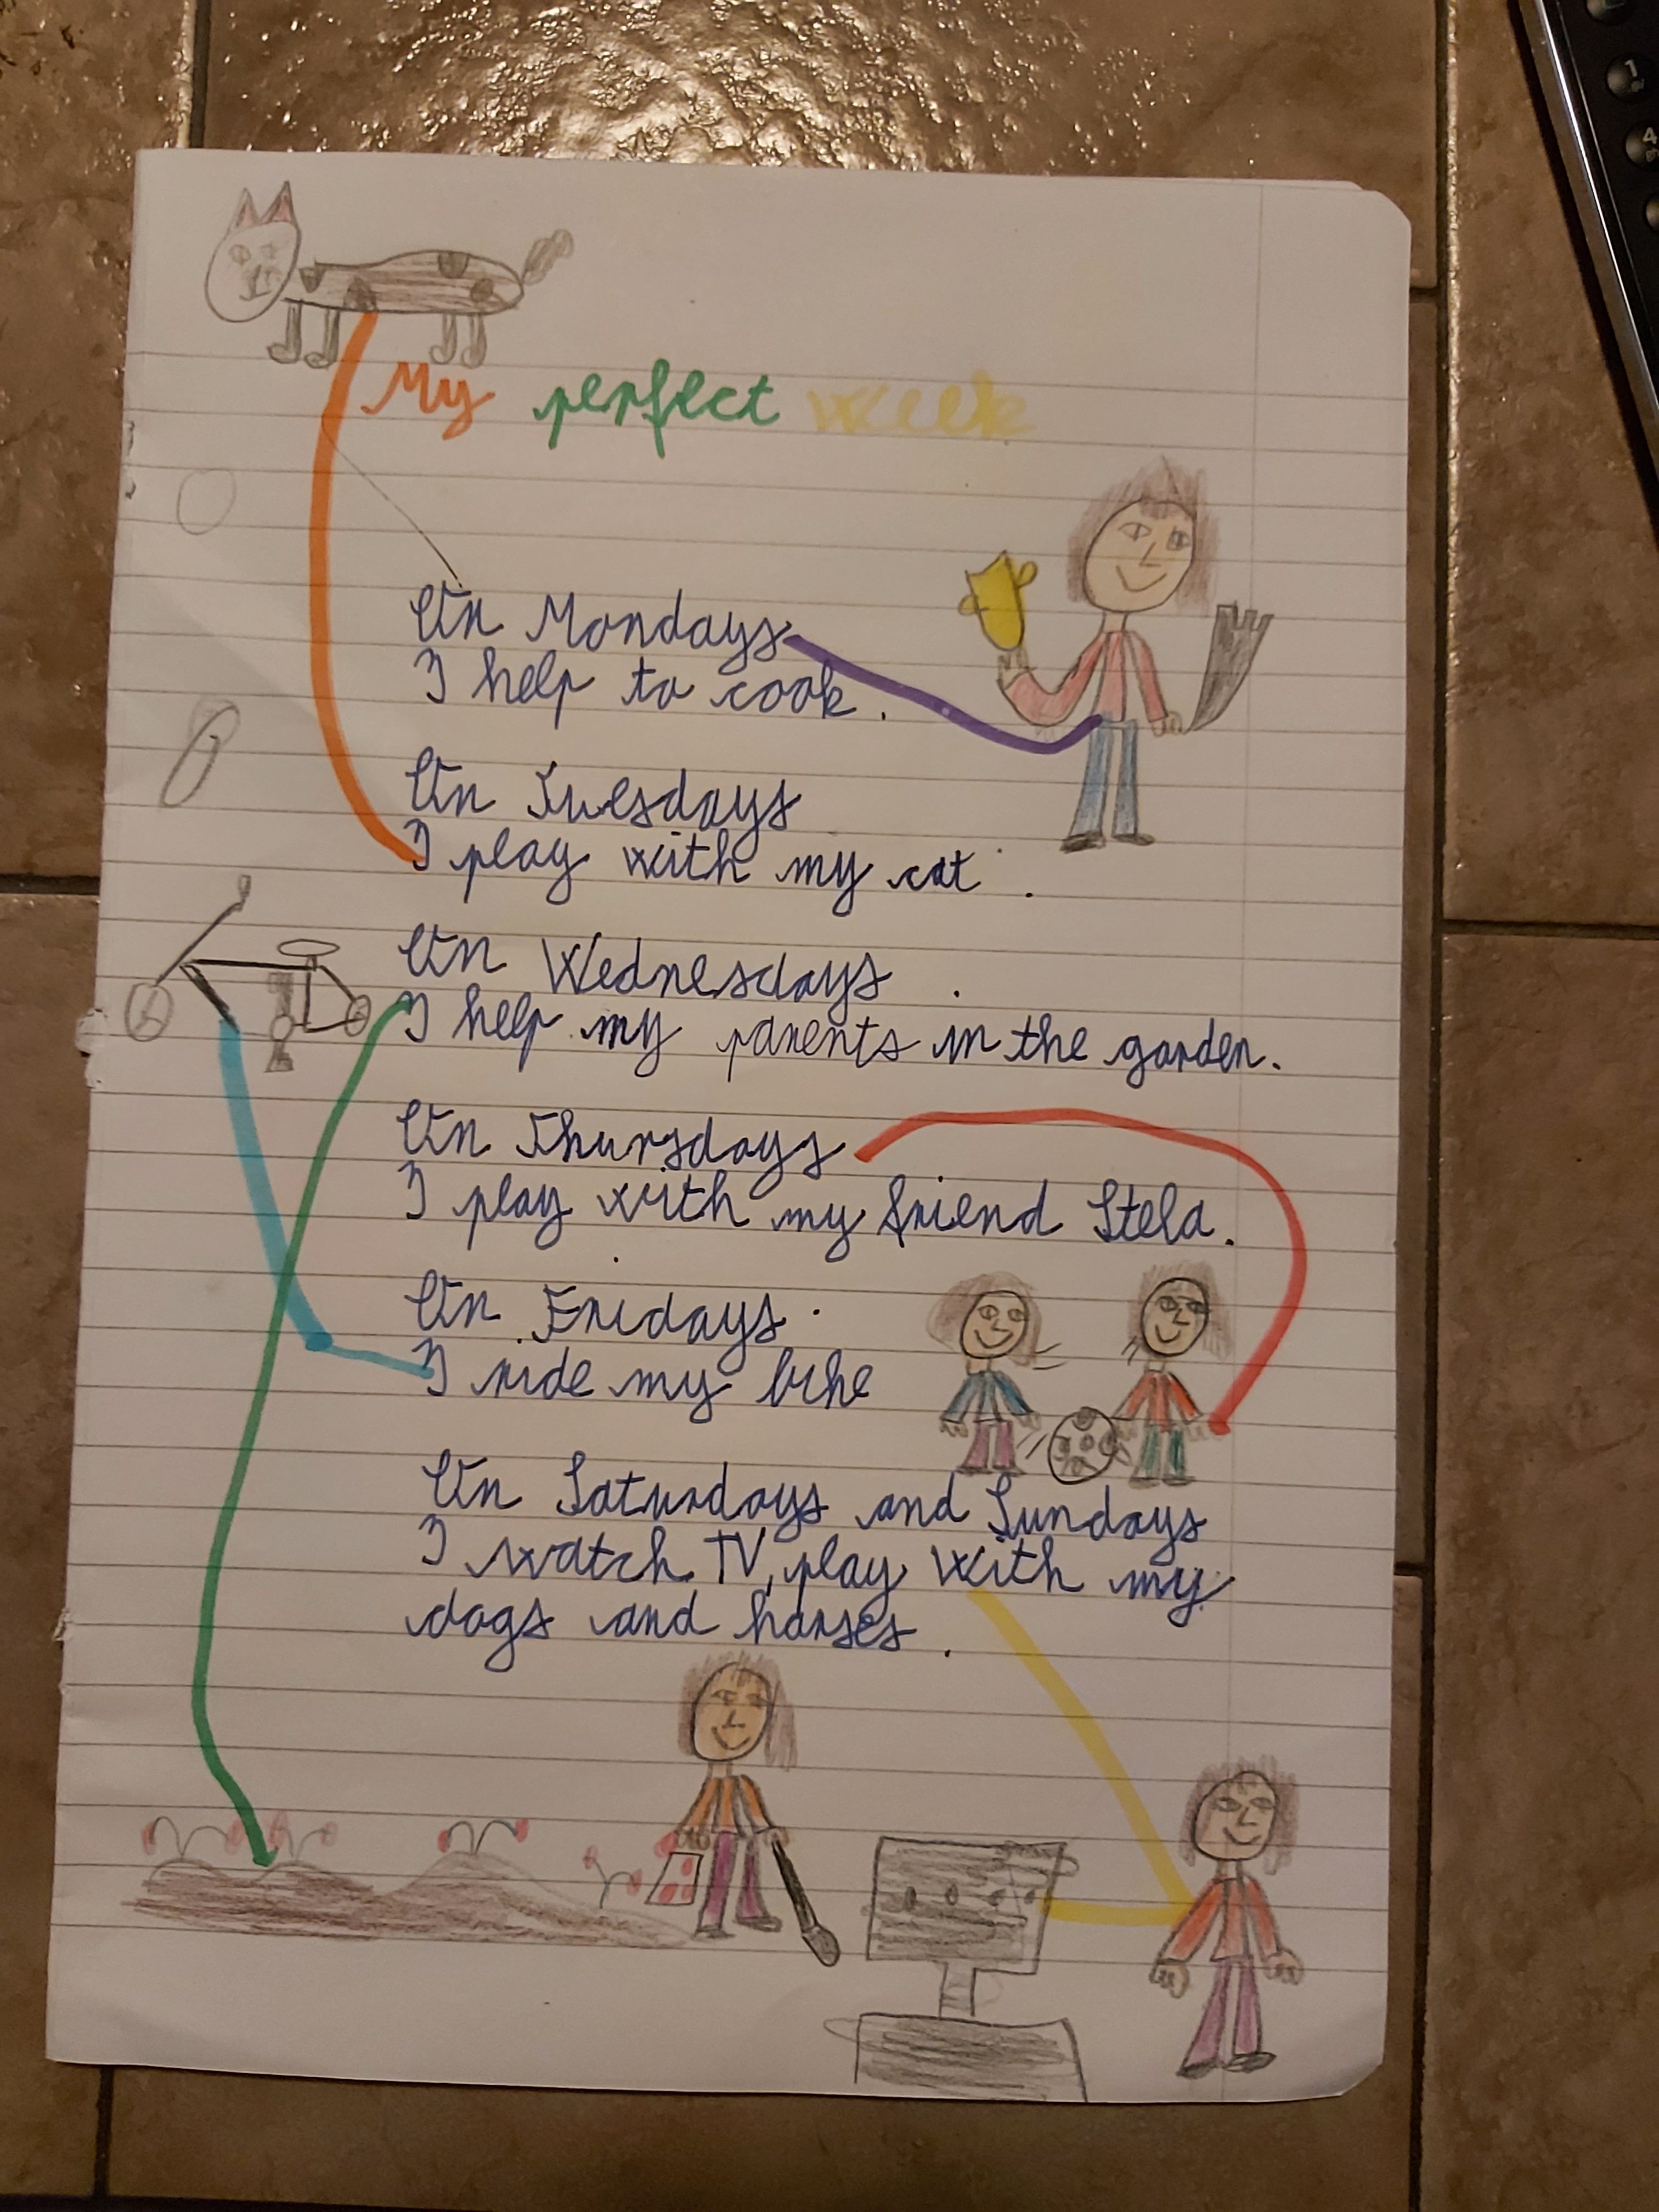 My perfect week
On Mondays
I help to cook.
On Tuesdays
I play with my cat.
On Wednesdays.
I help my parents in the garden.
On Thursdays
I play with my friend Stela.
On Fridays.
I ride my bike
On Saturdays and Sundays
I watch TV, play with my
dogs and horses.
1
4